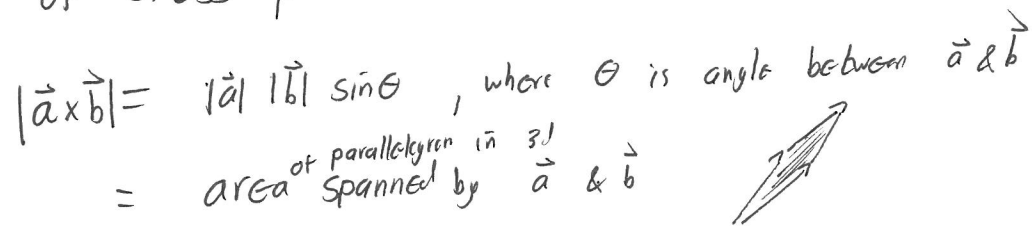 |a⃗ × b⃗| = |a⃗| |b⃗| sinθ , where θ is angle between a⃗ & b⃗
= area of parallelogram in 3d spanned by a⃗ & b⃗